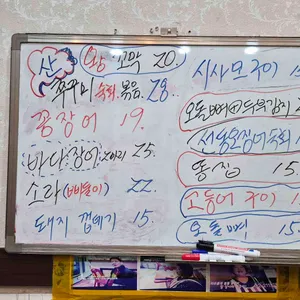 산 왕꼬막 20.
쭈꾸미 숙회.볶음. 28.
곰장어 19.
바다장어 25.
소라(삐뚤이) 22.
돼지 껍데기 15.
시사모구이
오돌뼈
오징어숙회
똥집 15.
고등어 구이 15